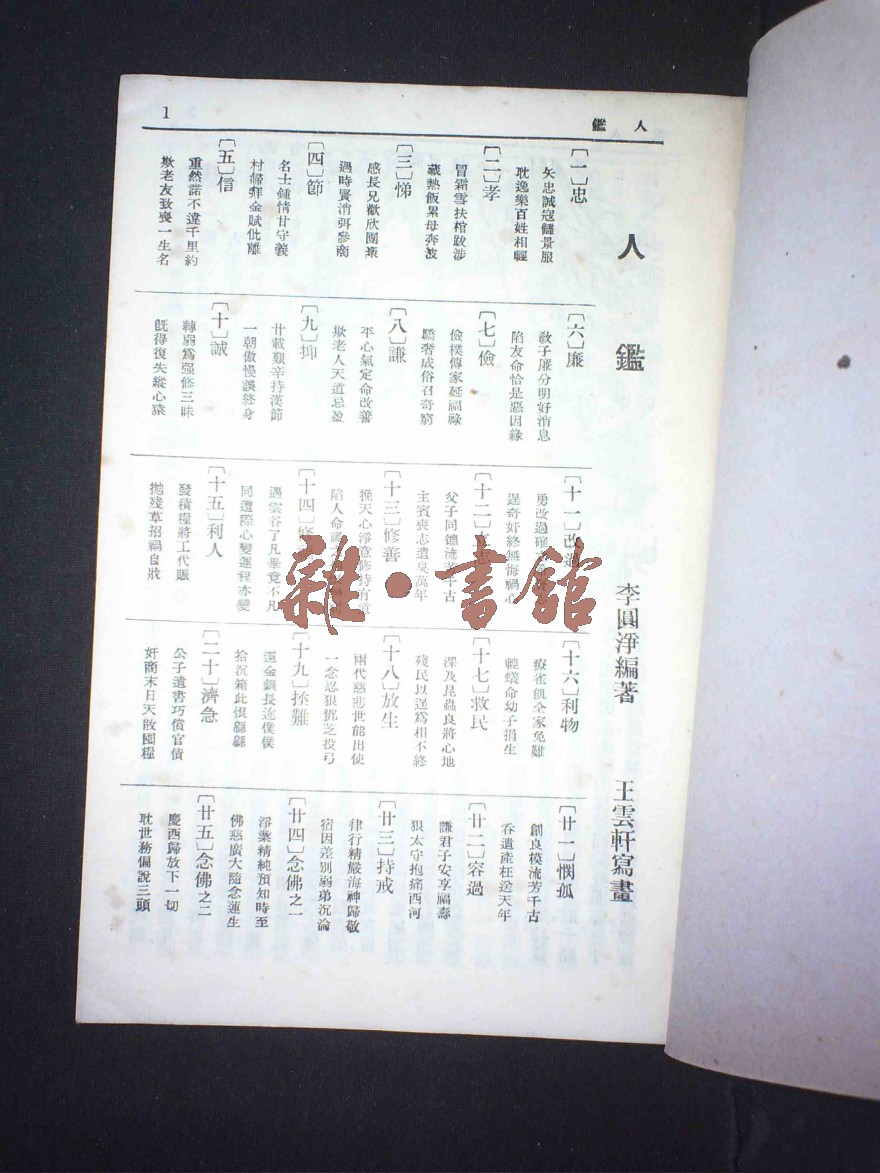 人鑑
1
人鑑
李圓淨編著
王雲軒寫畫
〔一〕忠
矢忠誠寇讎景服
耽逸樂百姓相輕
〔二〕孝
冒霜雪扶棺跋涉
藏熱飯累母奔波
〔三〕悌
感長兄歡欣團聚
遇時賢消弭參商
〔四〕節
名士鍾情甘守義
村婦拜金賦仳離
〔五〕信
重然諾不違千里約
欺老友致喪一生名
〔六〕廉
敎子廉分明好消息
陷友命恰是惡因緣
〔七〕儉
儉樸傳家延福祿
驕奢成俗召奇窮
〔八〕謙
平心氣定命改善
欺老人天道忌盈
〔九〕抑
廿載艱辛持漢節
一朝傲慢誤終身
〔十〕誠
轉弱爲强修三昧
旣得復失縱心猿
〔十一〕改過
勇改過
逞奇奸終無悔禍心
〔十二〕
父子同德流芳千古
主賓喪志遺臭萬年
〔十三〕修善
挽天心淨意修持有道
陷人命
〔十四〕修
遇雲谷了凡畢竟不凡
同遭際心變運程亦變
〔十五〕利人
發積糧將工代賑
拋殘草招禍自戕
〔十六〕利物
療雀飢全家免難
輕蟻命幼子捐生
〔十七〕救民
澤及昆蟲良將心地
殘民以逞爲相不終
〔十八〕放生
兩代慈悲世能出使
一念忍狠鄧芝投弓
〔十九〕拯難
還金鐲長途僕僕
拾沉箱此恨緜緜
〔二十〕濟急
公子遺書巧償官債
奸商末日天散囤糧
〔廿一〕憫孤
創良模流芳千古
吞遺產枉送天年
〔廿二〕容過
謙君子安享福壽
狠太守抱痛西河
〔廿三〕持戒
律行精嚴海神歸敬
宿因差別弱弟沉淪
〔廿四〕念佛之一
淨業精純預知時至
佛慈廣大隨念蓮生
〔廿五〕念佛之二
慶西歸放下一切
耽世務偏說三頭
雜·書館